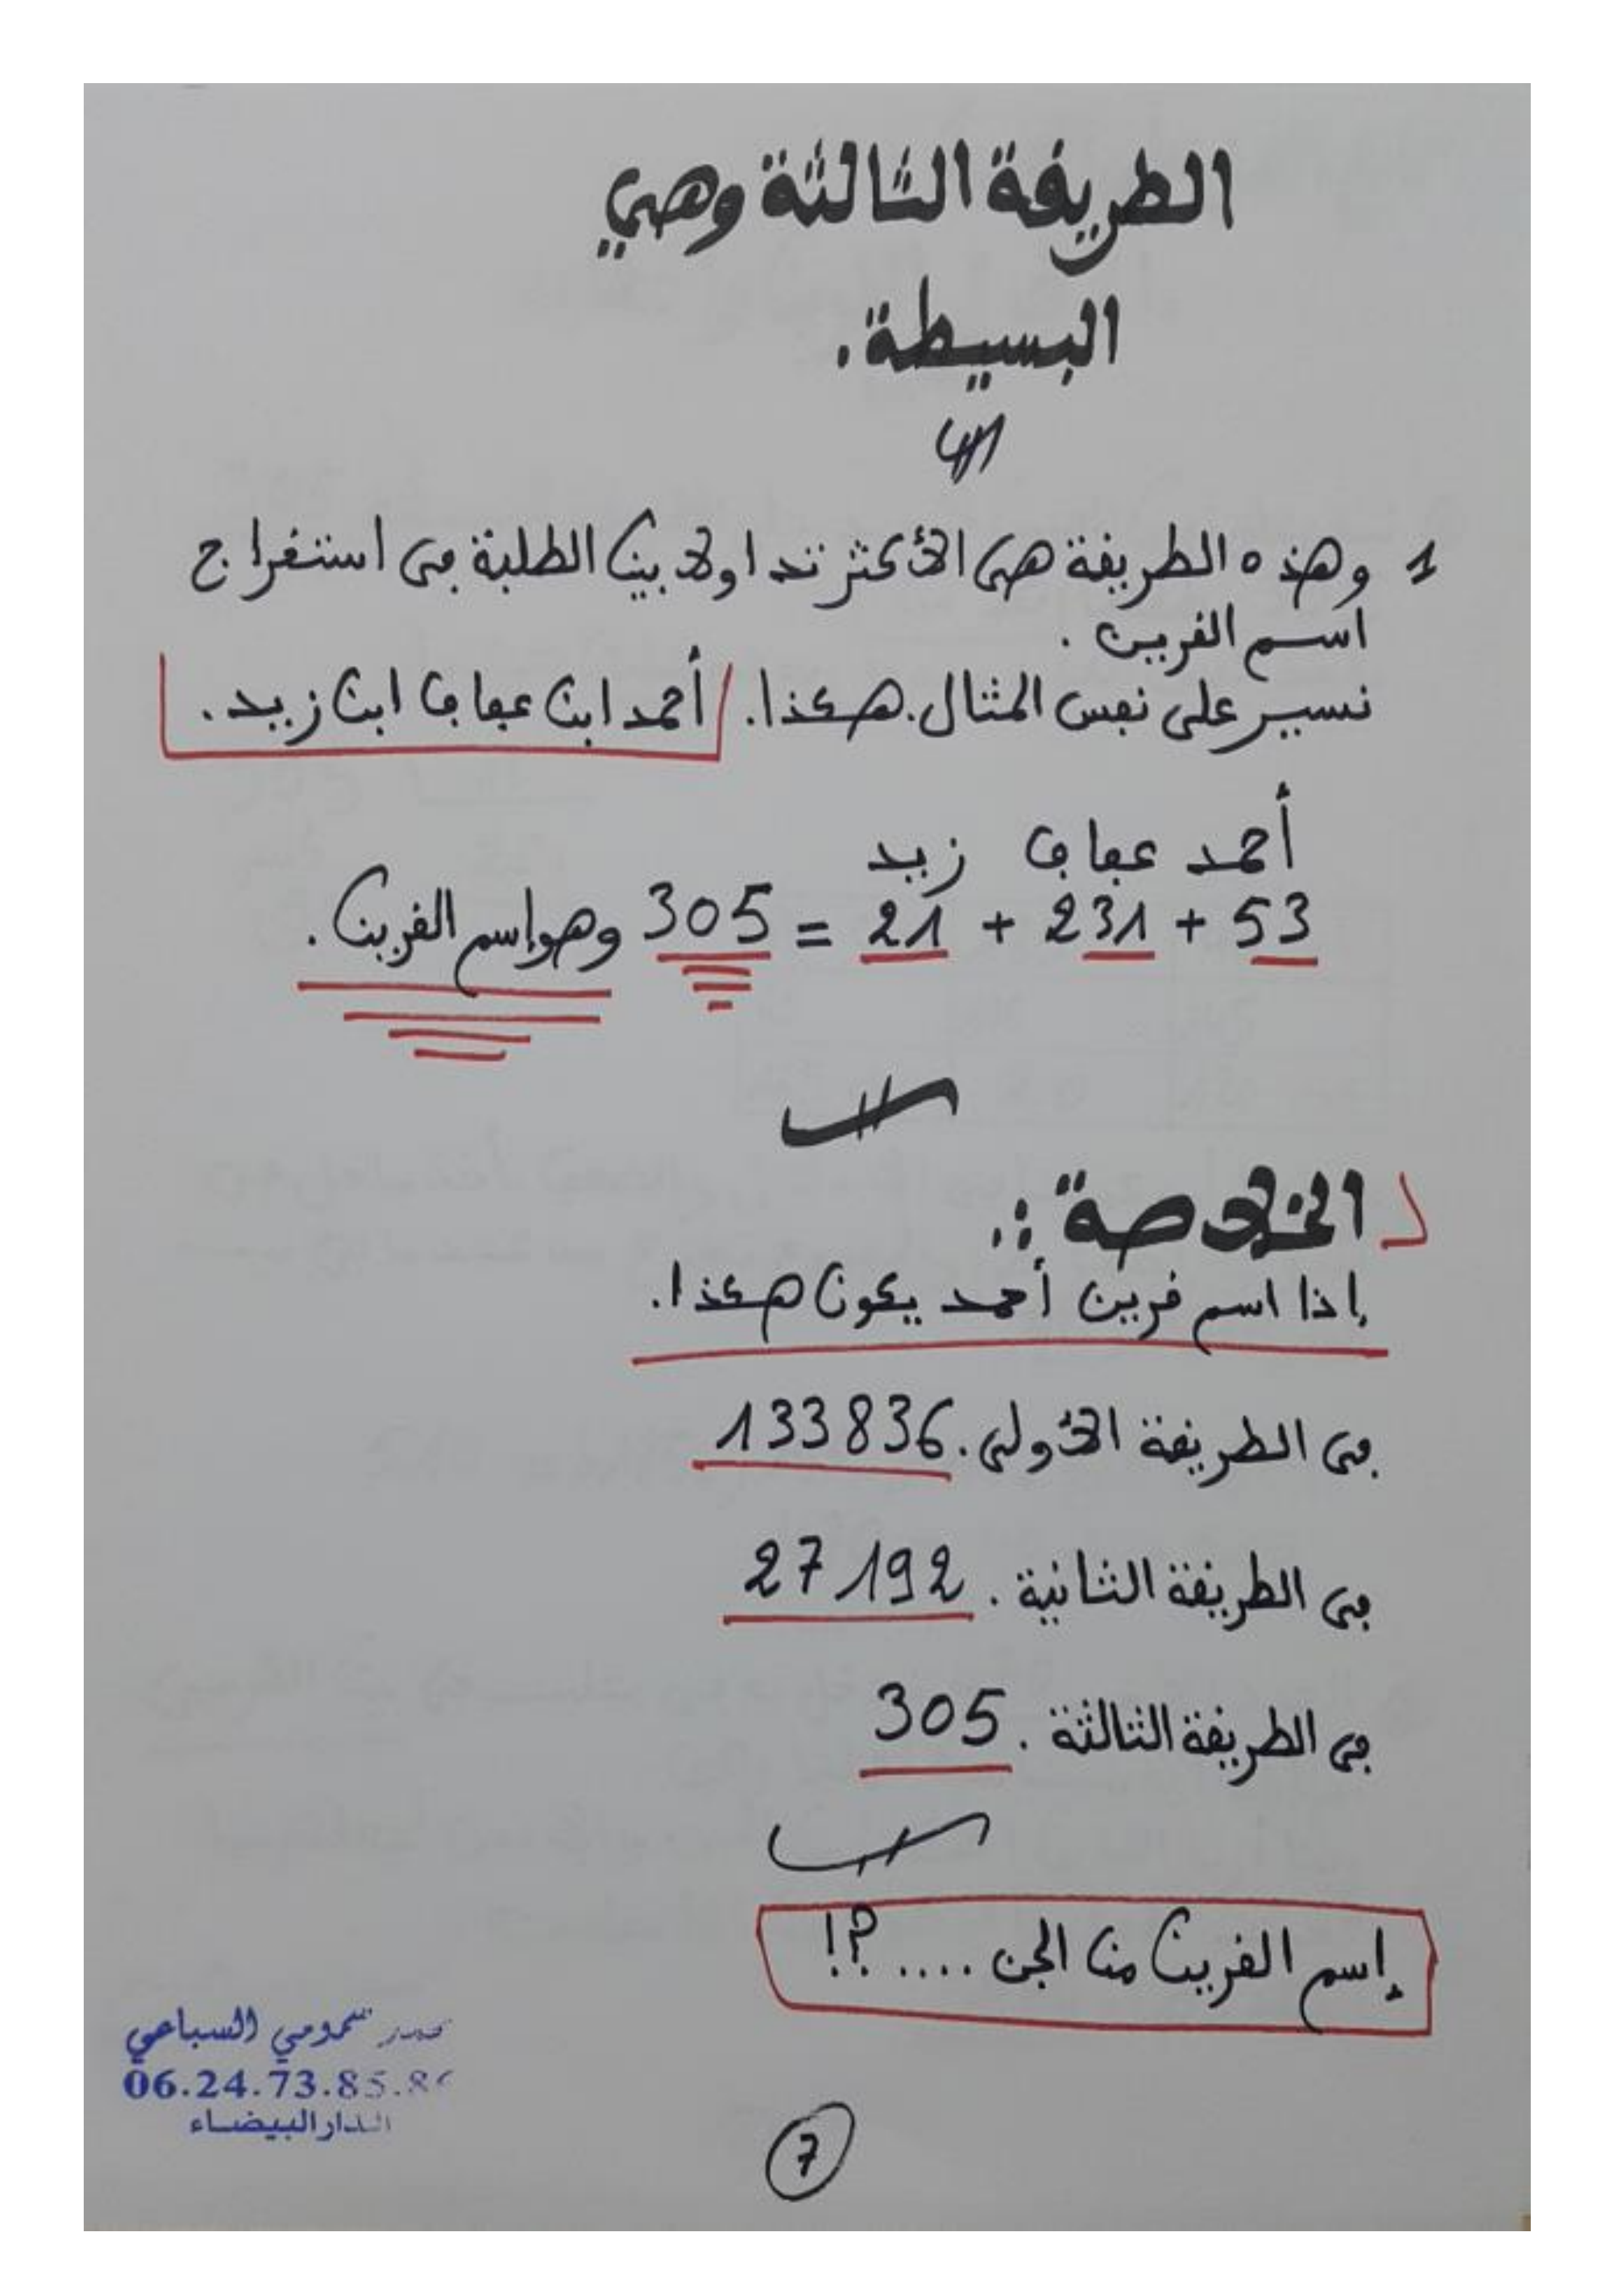 الطريقة الثالثة وهي
البسيطة.
1 وهذه الطريقة هي الأكثر تداولا بين الطلبة في استقراج
اسم القرين.
نسير على نفس المثال. هكذا. أحمد ابن عفاف ابن زيد.
أحمد عفاف زيد
53 + 231 + 21 = 305 وهو إسم القرين.
الخلاصة :.
إذا اسم قرين أحمد يكون هكذا.
في الطريقة الأولى. 133836
في الطريقة الثانية. 27192
في الطريقة الثالثة. 305
إسم القرين من الجن ....؟!
سمومي السباعي
06.24.73.85.8
الدار البيضاء
7